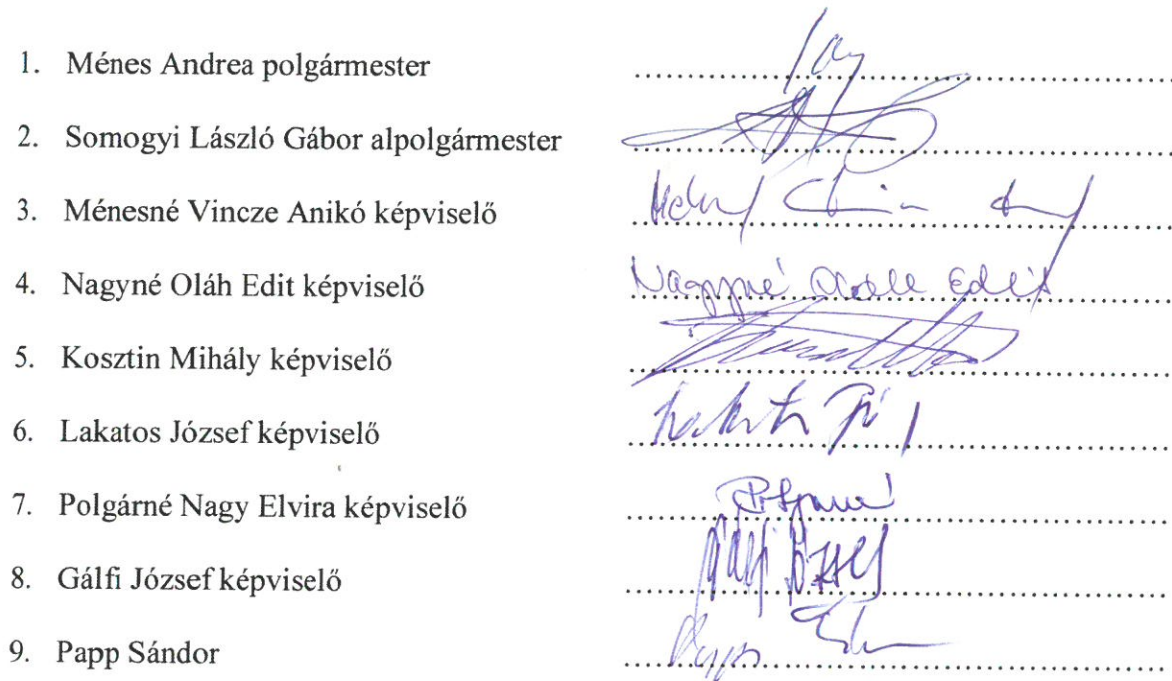 1. Ménes Andrea polgármester
2. Somogyi László Gábor alpolgármester
3. Ménesné Vincze Anikó képviselő
4. Nagyné Oláh Edit képviselő Nagyné Oláh Edit
5. Kosztin Mihály képviselő
6. Lakatos József képviselő
7. Polgárné Nagy Elvira képviselő Polgárné
8. Gálfi József képviselő Gálfi József
9. Papp Sándor Papp